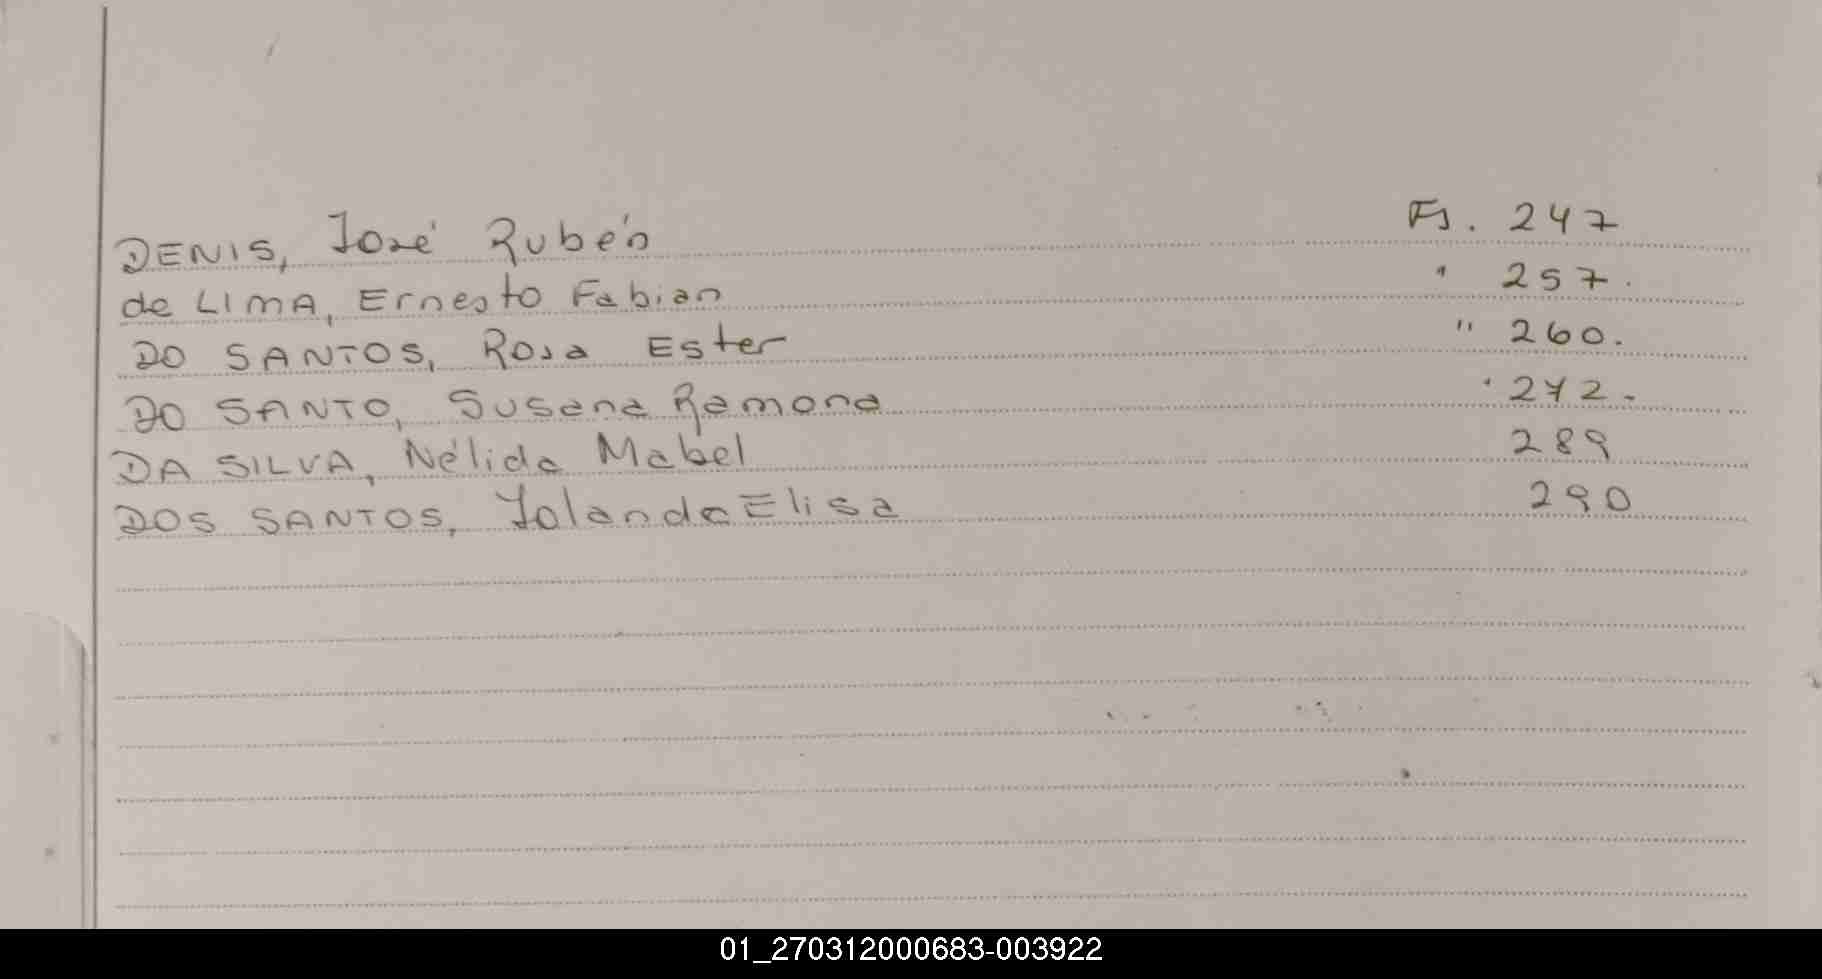 DENIS, José Rubén Fs. 247
de LIMA, Ernesto Fabian " 257.
DO SANTOS, Rosa Ester " 260.
DO SANTO, Susana Ramona " 272.
DA SILVA, Nélida Mabel 289
DOS SANTOS, Yolanda Elisa 290
01_270312000683-003922